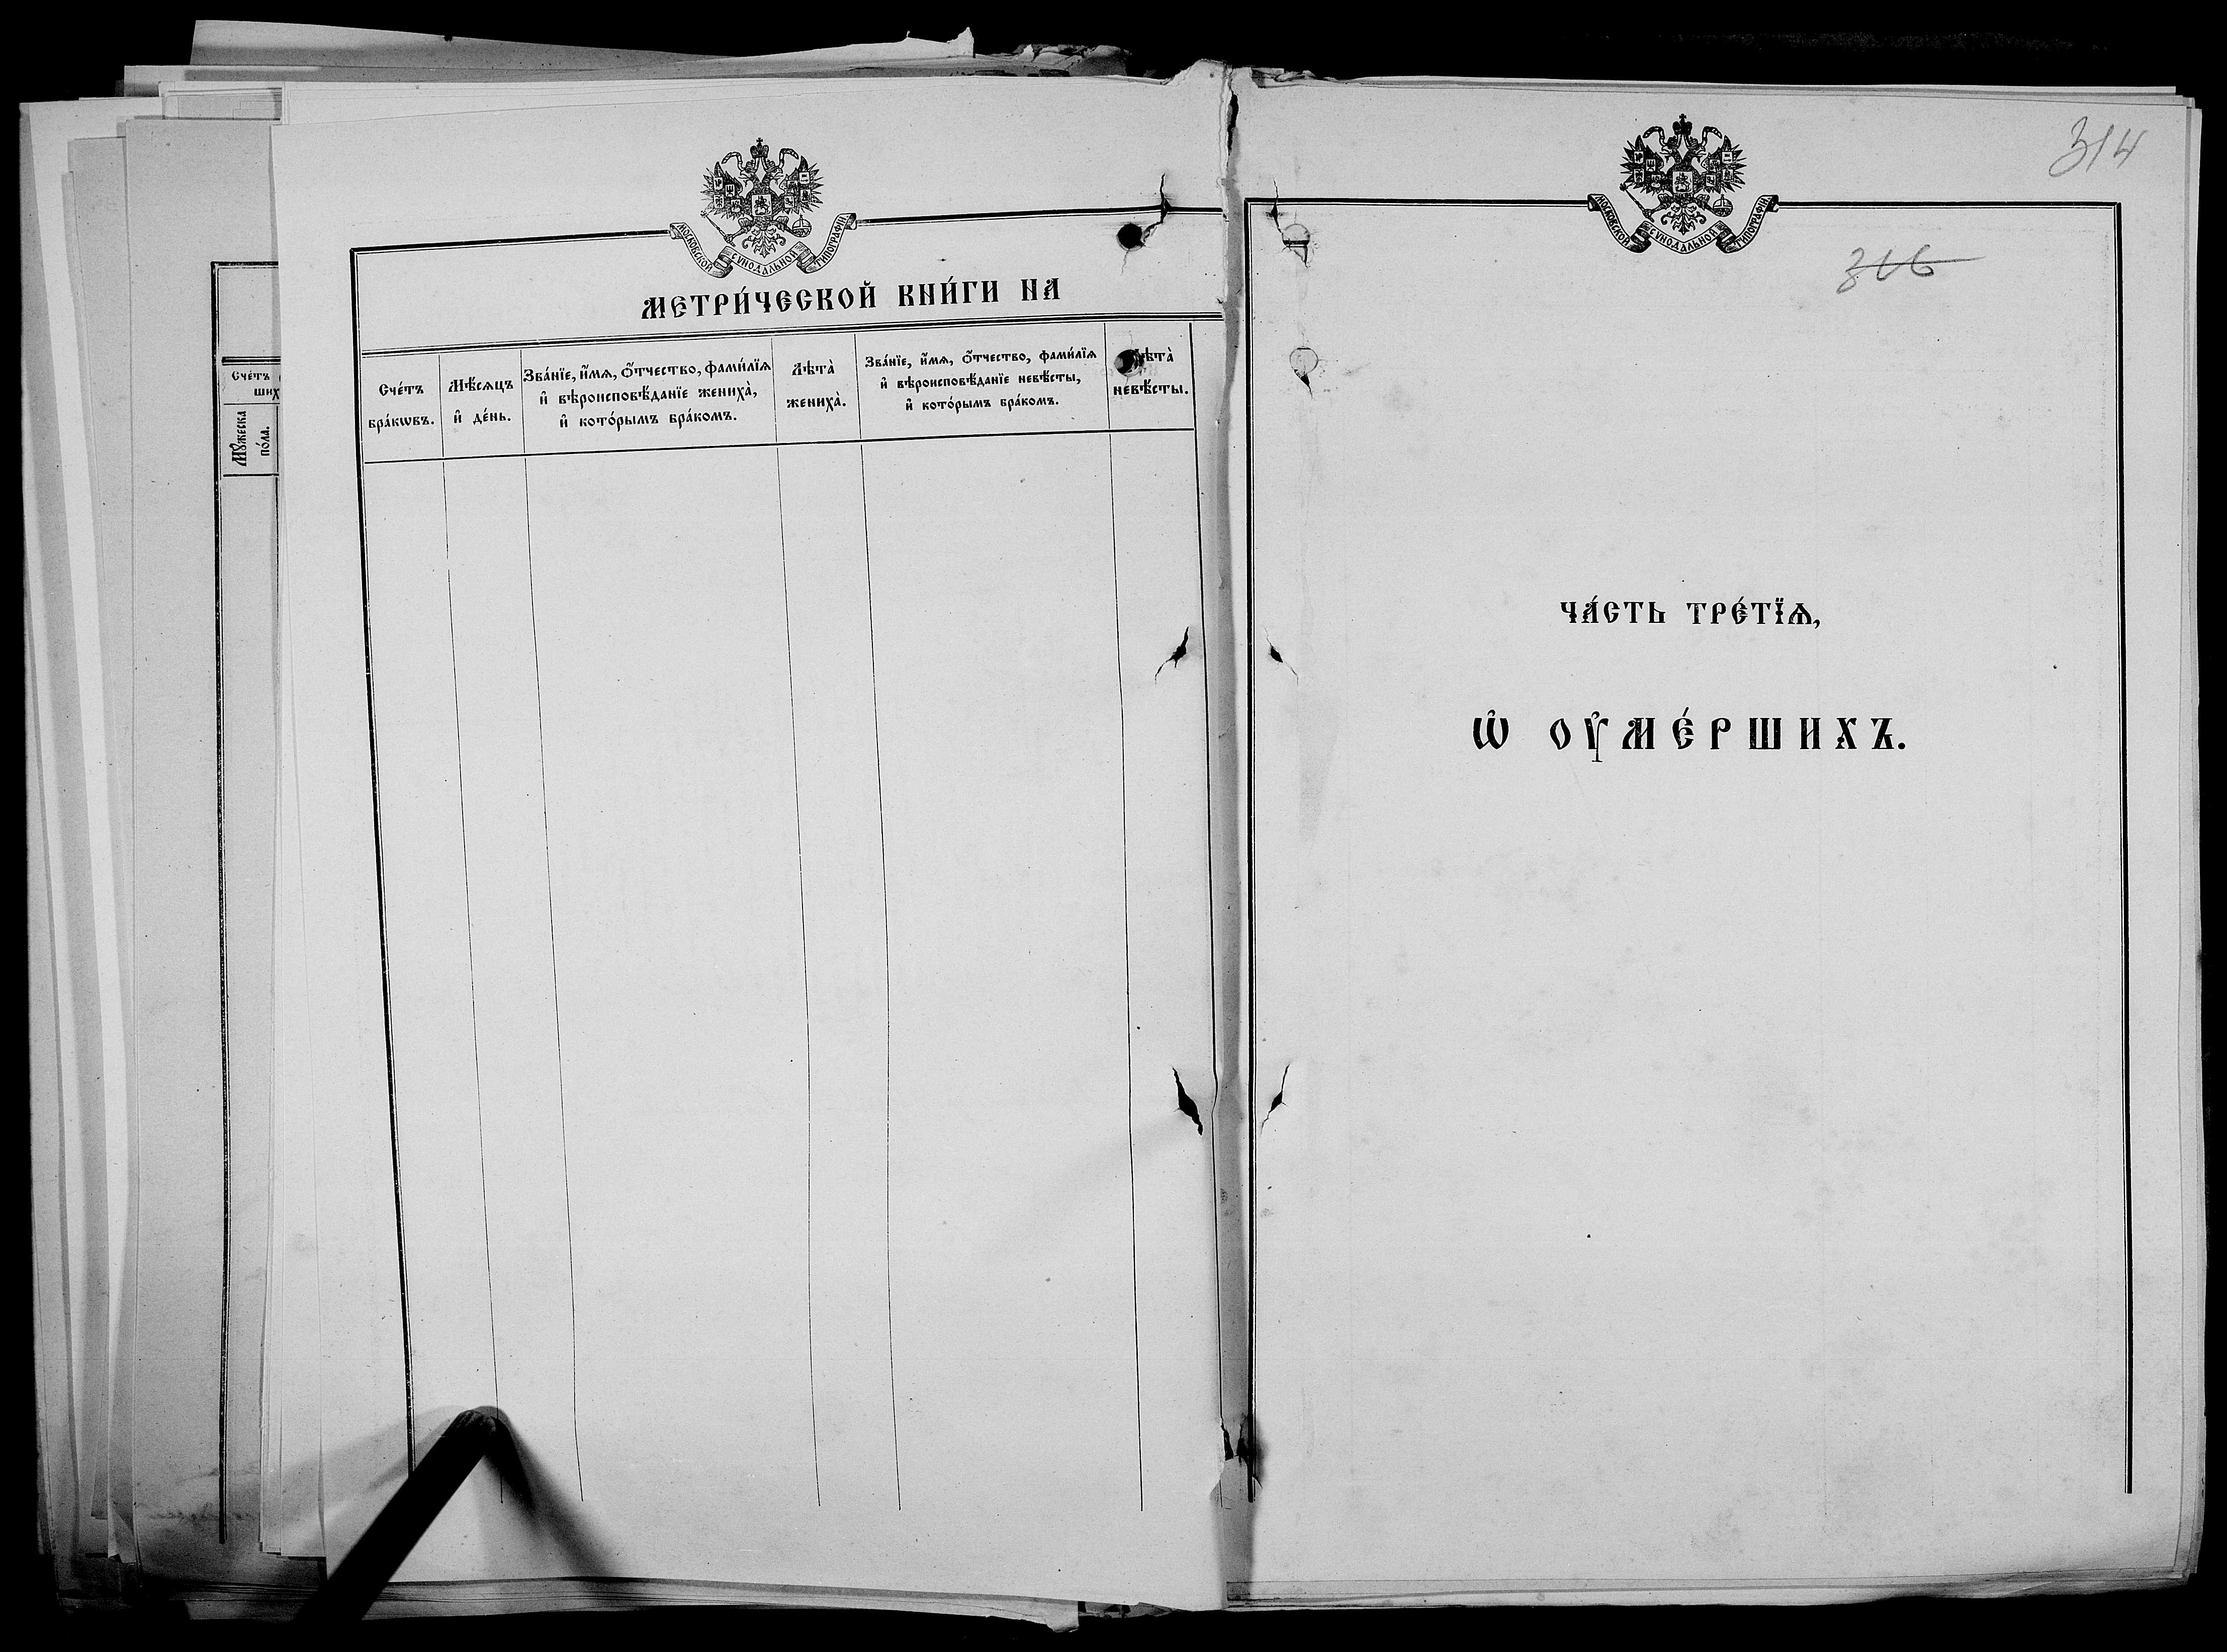 Счéтъ
ших
Мꙋжеска
пóла.
МОСКОВСКОЙ СѴНОДАЛЬНОЙ ТИПОГРАФІИ
МЕТРИ́ЧЕСКОЙ КНИ́ГИ НА
Счéтъ
брáкѡвъ.
Мѣ́сѧцъ
и҆ де́нь.
Звáнїе, и҆́мѧ, ѻ҆́тчество, фами́лїѧ
и҆ вѣроисповѣ́данїе женихà,
и҆ кото́рымъ брáкомъ.
Лѣтà
женихà.
Звáнїе, и҆́мѧ, ѻ҆́тчество, фами́лїѧ
и҆ вѣроисповѣ́данїе невѣ́сты,
и҆ кото́рымъ брáкомъ.
Лѣтà
невѣ́сты.
314
МОСКОВСКОЙ СѴНОДАЛЬНОЙ ТИПОГРАФІИ
316
ЧА́СТЬ ТРЕ́ТЇѦ,
Ѡ҆ ОУ҆МЕ́РШИХЪ.